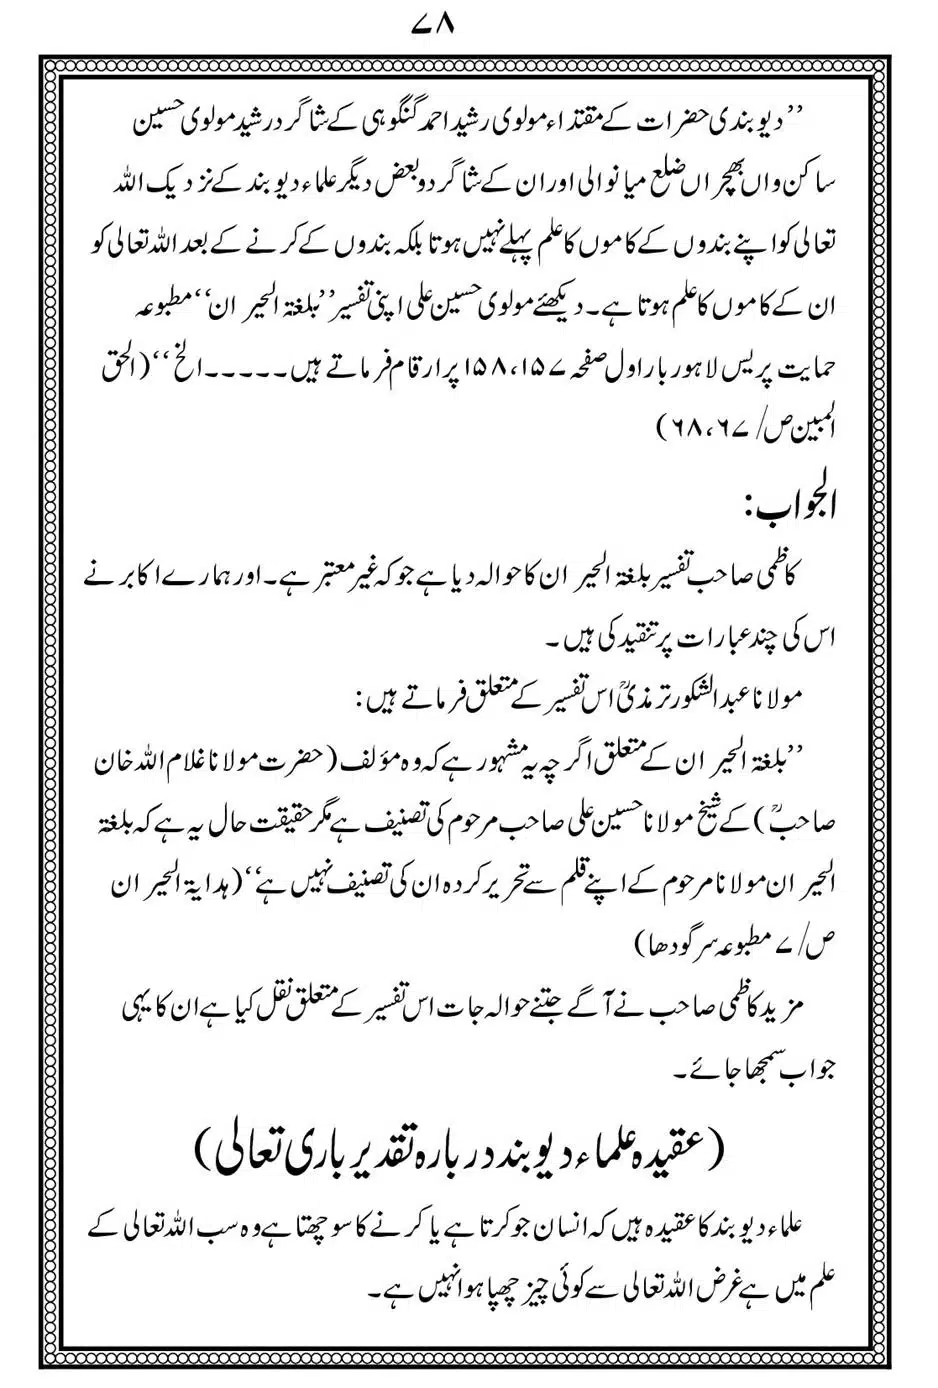 ۷۸
’’دیوبندی حضرات کے مقتداء مولوی رشید احمد گنگوہی کے شاگرد رشید مولوی حسین
ساکن واں بھچراں ضلع میانوالی اور ان کے شاگرد و بعض دیگر علماء دیوبند کے نزدیک اللہ
تعالی کو اپنے بندوں کے کاموں کا علم پہلے نہیں ہوتا بلکہ بندوں کے کرنے کے بعد اللہ تعالی کو
ان کے کاموں کا علم ہوتا ہے۔ دیکھئے مولوی حسین علی اپنی تفسیر ’’بلغۃ الحیر ان‘‘ مطبوعہ
حمایت پریس لاہور بار اول صفحہ ۱۵۷،۱۵۸ پر ارقام فرماتے ہیں۔۔۔۔۔الخ ‘‘ (الحق
المبین ص/ ۶۷،۶۸)
الجواب:
کاظمی صاحب تفسیر بلغۃ الحیر ان کا حوالہ دیا ہے جو کہ غیر معتبر ہے۔ اور ہمارے اکابر نے
اس کی چند عبارات پر تنقید کی ہیں ۔
مولانا عبدالشکور ترمذیؒ اس تفسیر کے متعلق فرماتے ہیں:
’’بلغۃ الحیر ان کے متعلق اگر چہ یہ مشہور ہے کہ وہ مؤلف (حضرت مولانا غلام اللہ خان
صاحبؒ) کے شیخ مولانا حسین علی صاحب مرحوم کی تصنیف ہے مگر حقیقت حال یہ ہے کہ بلغۃ
الحیر ان مولانا مرحوم کے اپنے قلم سے تحریر کردہ ان کی تصنیف نہیں ہے‘‘ (ہدایۃ الحیر ان
ص/ ۷ مطبوعہ سرگودھا)
مزید کاظمی صاحب نے آگے جتنے حوالہ جات اس تفسیر کے متعلق نقل کیا ہے ان کا یہی
جواب سمجھا جائے ۔
(عقیدہ علماء دیوبند دربارہ تقدیر باری تعالی)
علماء دیوبند کا عقیدہ ہیں کہ انسان جو کرتا ہے یا کرنے کا سوچھتا ہے وہ سب اللہ تعالی کے
علم میں ہے غرض اللہ تعالی سے کوئی چیز چھپا ہوا نہیں ہے۔